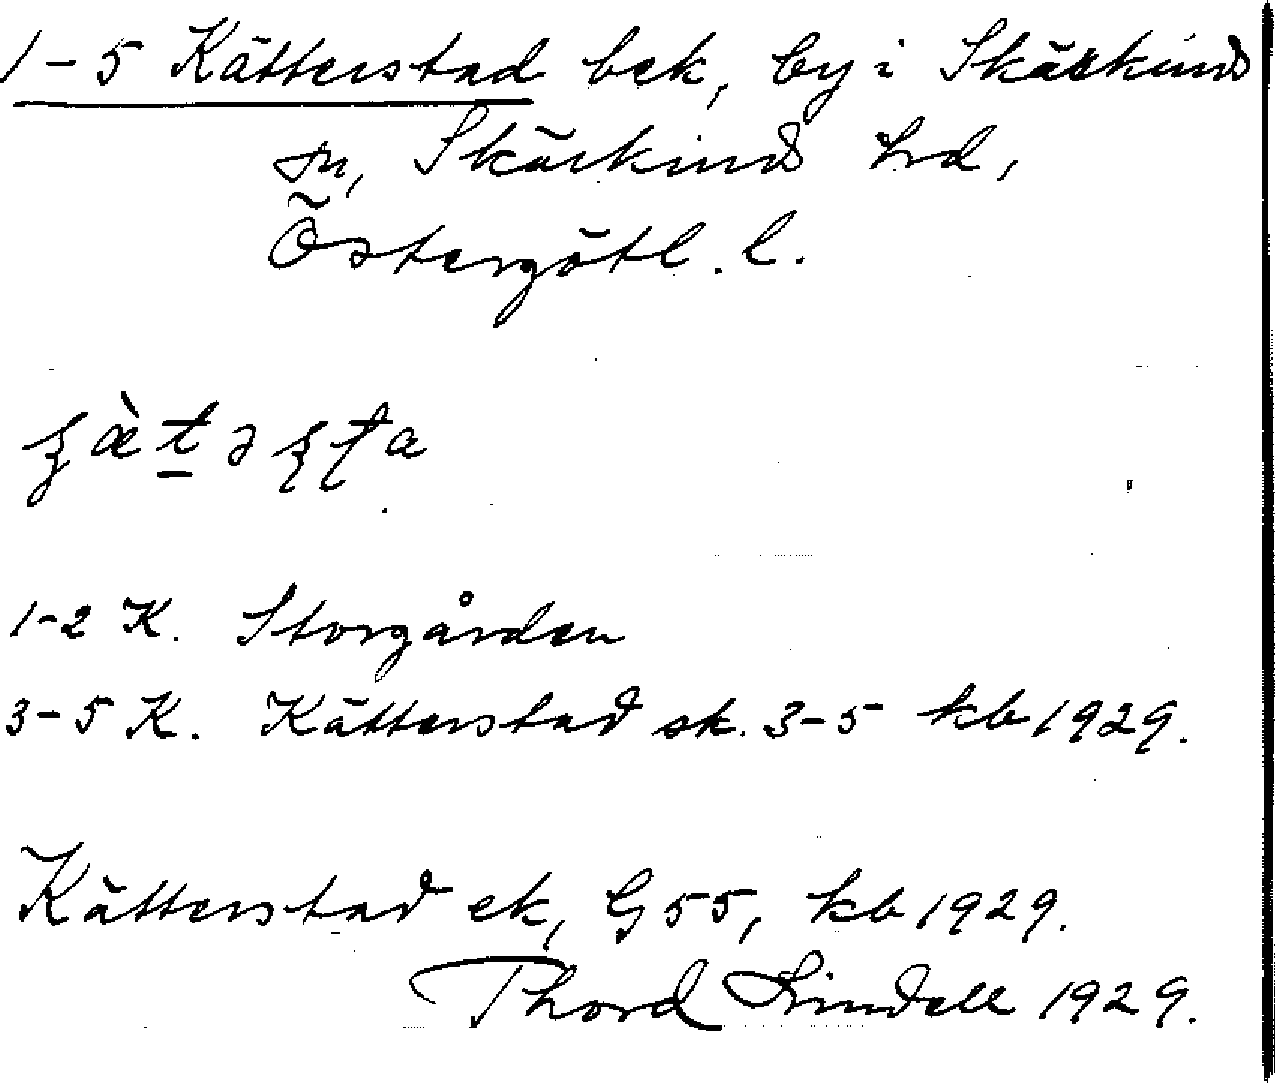 1-5 Kätterstad bek, by i Skärkind
sn, Skärkind hd,
Östergötl. l.
1-2 K. Storgården
3-5 K. Kätterstad sk. 3-5 kb 1929.
Kätterstad ek, G 55, kb 1929.
Thord Lindell 1929.